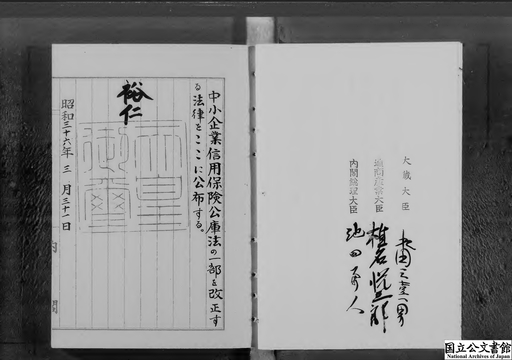 中小企業信用保険公庫法の一部を改正す
る法律をここに公布する。
裕仁
天皇
御璽
昭和三十六年三月三十一日
内閣
大蔵大臣
通商産業大臣 椎名悦三郎
内閣総理大臣 池田勇人
国立公文書館
National Archives of Japan